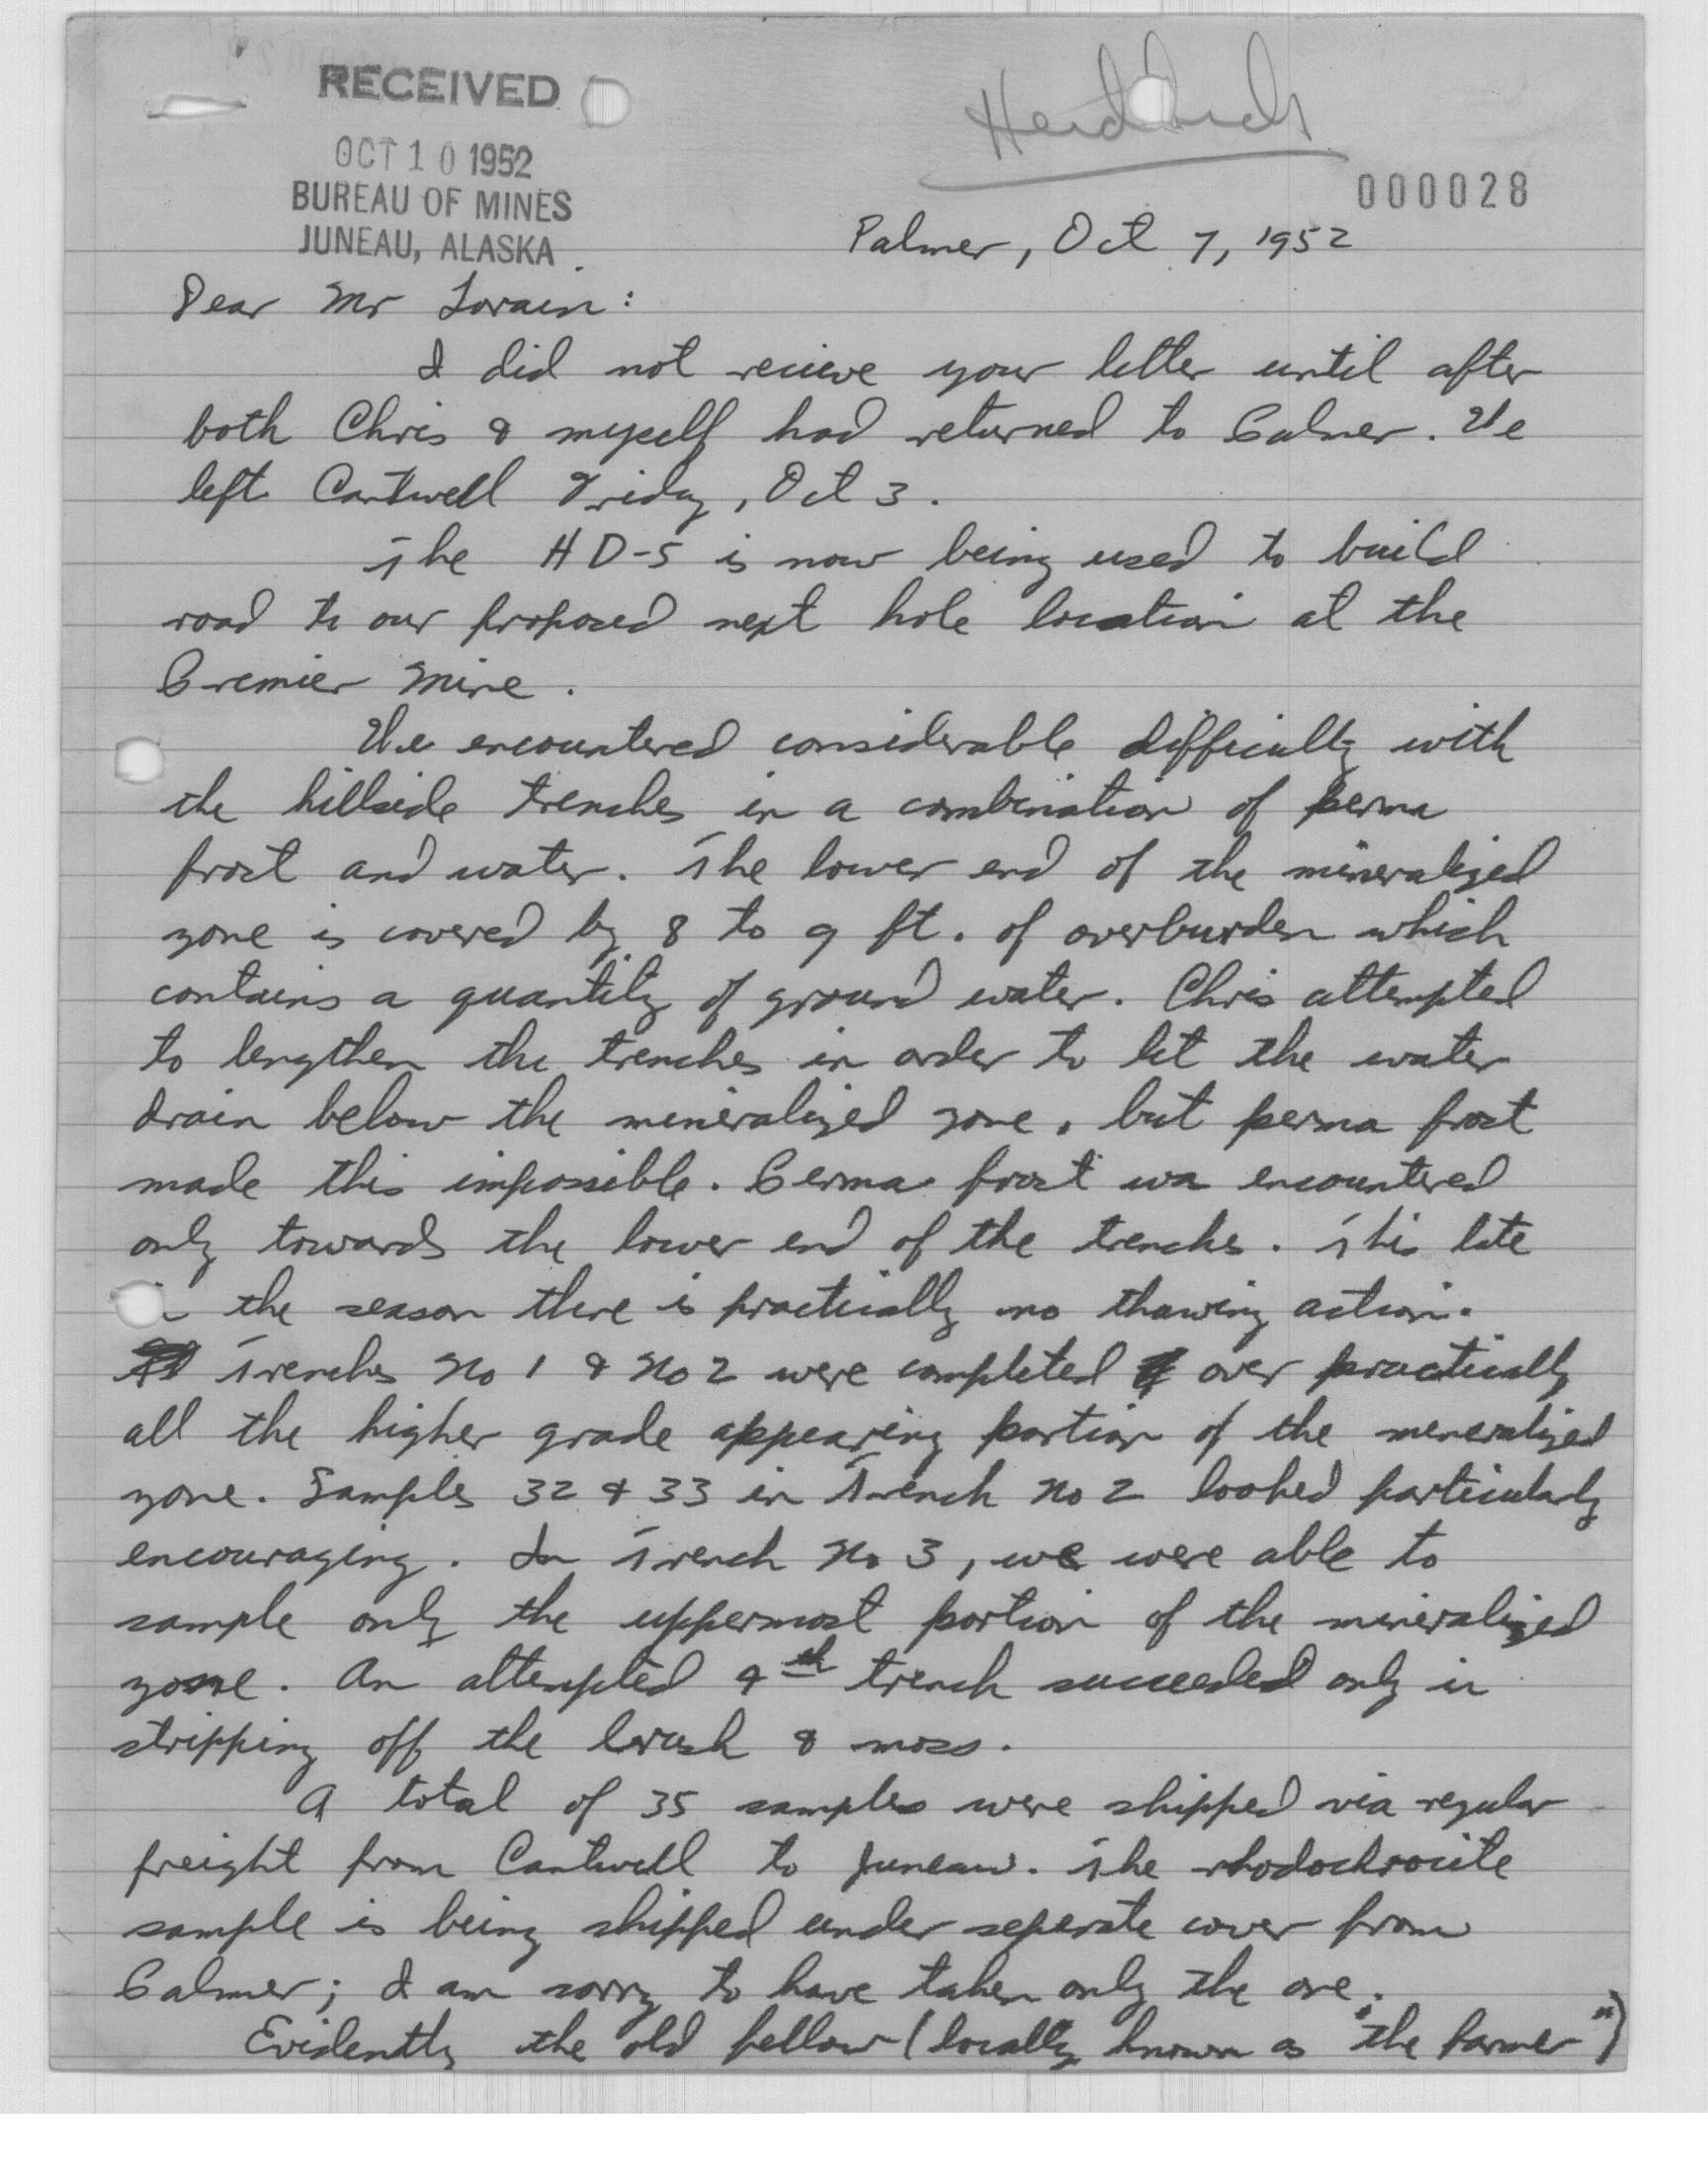 RECEIVED
OCT 10 1952
BUREAU OF MINES
JUNEAU, ALASKA
000028
Palmer, Oct 7, 1952
Dear Mr Lorain:
I did not recieve your letter until after
both Chris & myself had returned to Palmer. We
left Cantwell Friday, Oct 3.
The HD-5 is now being used to build
road to our proposed next hole location at the
Premier Mine.
We encountered considerable difficulty with
the hillside trenches in a combination of perma
frost and water. The lower end of the mineralized
zone is covered by 8 to 9 ft. of overburden which
contains a quantity of ground water. Chris attempted
to lengthen the trenches in order to let the water
drain below the mineralized zone, but perma frost
made this impossible. Perma frost wa encountered
only towards the lower end of the trenches. This late
the season there is practically no thawing action.
Trenches No 1 & No 2 were completed over practically
all the higher grade appearing portion of the mineralized
zone. Samples 32 & 33 in Trench No 2 looked particularly
encouraging. In Trench No 3, we were able to
sample only the uppermost portion of the mineralized
zone. An attempted 4th trench succeeded only in
stripping off the brush & moss.
A total of 35 samples were shipped via regular
freight from Cantwell to Juneau. The rhodochrosite
sample is being shipped under seperate cover from
Palmer; I am sorry to have taken only the one.
Evidently the old fellow (locally known as "the farmer")